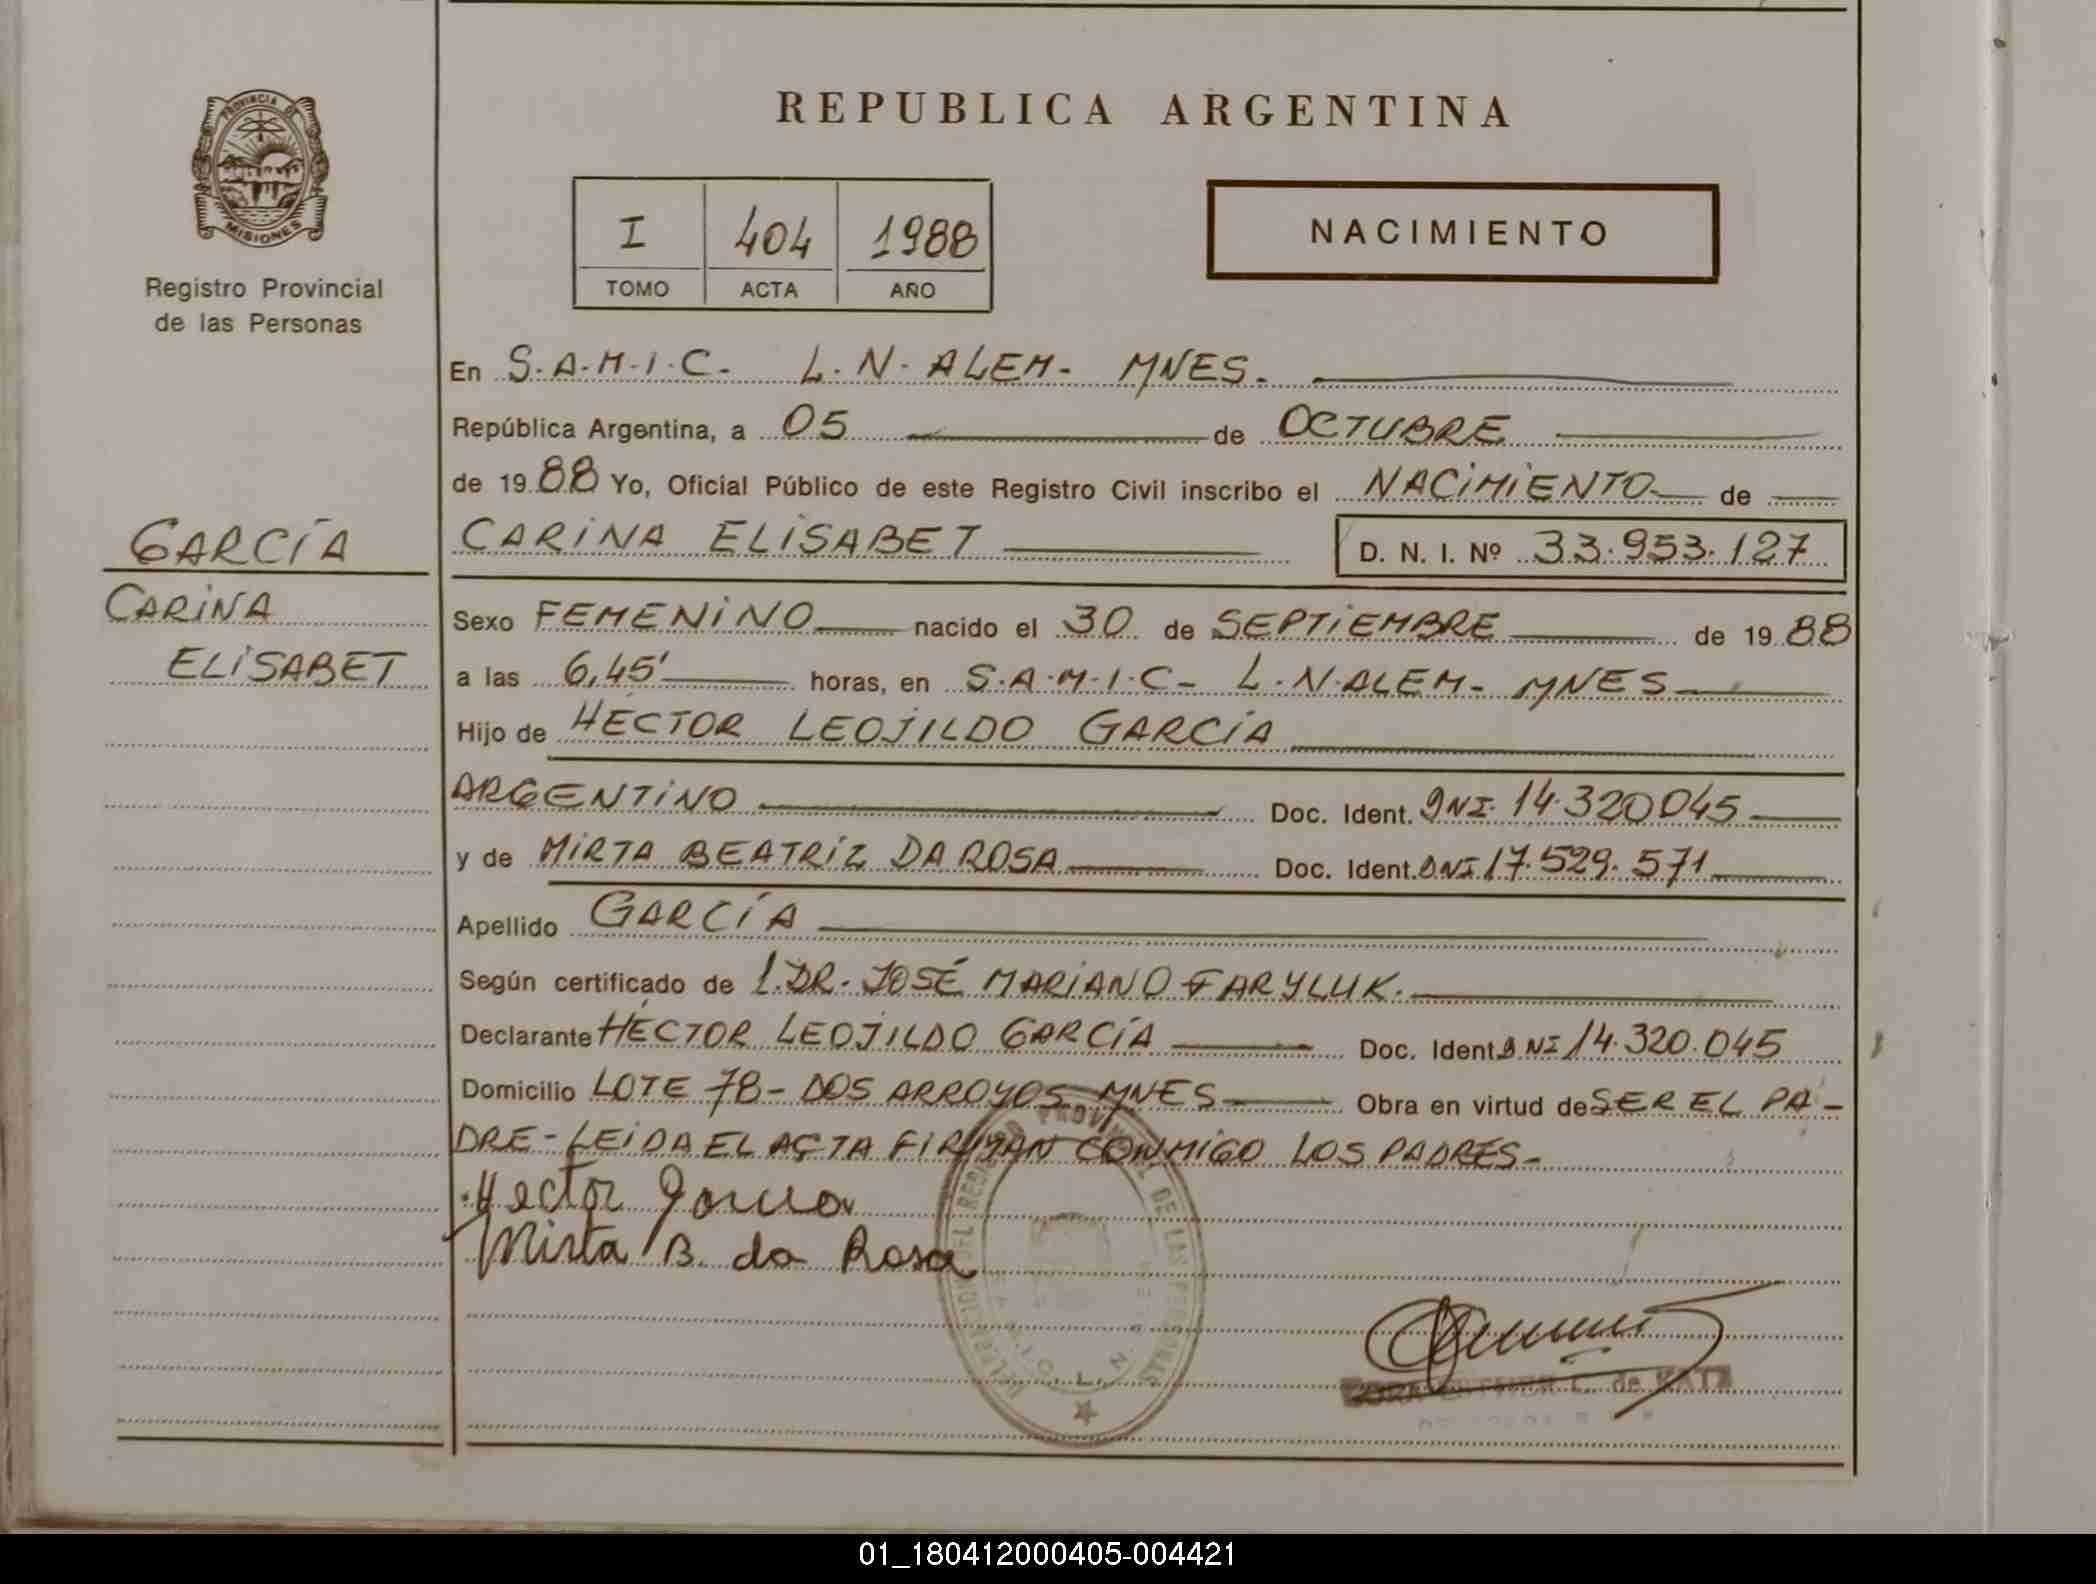 REPUBLICA ARGENTINA
PROVINCIA DE
MISIONES
Registro Provincial
de las Personas
I 404 1988
TOMO ACTA AÑO
NACIMIENTO
En S.A.M.I.C. L.N.ALEM- MNES.
República Argentina, a 05 de OCTUBRE
de 1988 Yo, Oficial Público de este Registro Civil inscribo el NACIMIENTO de
GARCÍA
CARINA
ELISABET
CARINA ELISABET D. N. I. Nº 33.953.127
Sexo FEMENINO nacido el 30 de SEPTIEMBRE de 1988
a las 6,45' horas, en S.A.M.I.C- L.N.ALEM- MNES
Hijo de HÉCTOR LEOJILDO GARCÍA
ARGENTINO Doc. Ident. DNI. 14.320045
y de MIRTA BEATRIZ DA ROSA Doc. Ident. DNI 17.529.571
Apellido GARCÍA
Según certificado de 1.DR. JOSÉ MARIANO FARYLUK.
Declarante HÉCTOR LEOJILDO GARCÍA Doc. Ident. DNI 14.320.045
Domicilio LOTE 78- DOS ARROYOS MNES Obra en virtud de SER EL PA-
DRE- LEIDA EL ACTA FIRMAN CONMIGO LOS PADRES-
Hector Garcia
Mirta B. da Rosa
DEL REGISTRO PROVINCIAL DE LAS PERSONAS
de KATZ
01_180412000405-004421